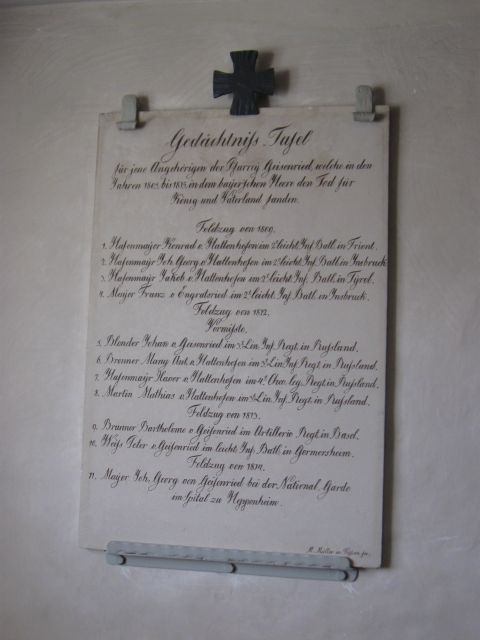 Gedächtniſs-Tafel
für jene Angehörigen der Pfarrey Geisenried, welche in den
Jahren 1805 bis 1815 in dem bayerschen Heere den Tod für
König und Vaterland fanden.
Feldzug von 1809.
1. Hafenmaijer Konrad v. Hattenhofen im 2t leicht. Inf. Batl. in Trient.
2. Hafenmayr Joh. Georg v. Hattenhofen im 2t leicht. Inf. Batl. in Insbruck.
3. Hafenmayr Jakob v. Hattenhofen im 2t leicht. Inf. Batl. in Tyrol.
4. Maijer Franz v. Engratsried im 2t leicht. Inf. Batl. in Insbruck.
Feldzug von 1812.
Vermißte.
5. Blender Johann v. Geisenried im Lin. Inf. Regt. in Ruſsland.
6. Brenner Mang Ant. v. Hattenhofen im Lin. Inf. Regt. in Ruſsland.
7. Hafenmayr Xaver v. Hattenhofen im 4t. Chev. leg. Regt. in Ruſsland.
8. Martin Mathias v. Hattenhofen im Lin. Inf. Regt. in Ruſsland.
Feldzug von 1813.
9. Brunner Bartholome v. Geiſenried im Artillerie Regt. in Basel.
10. Weiſs Peter v. Geiſenried im leicht. Inf. Batl. in Germersheim.
Feldzug von 1814.
11. Maijer Joh. Georg von Geiſenried bei der National Garde
im Spital zu Heppenheim.
M. Müller in Füssen fec.